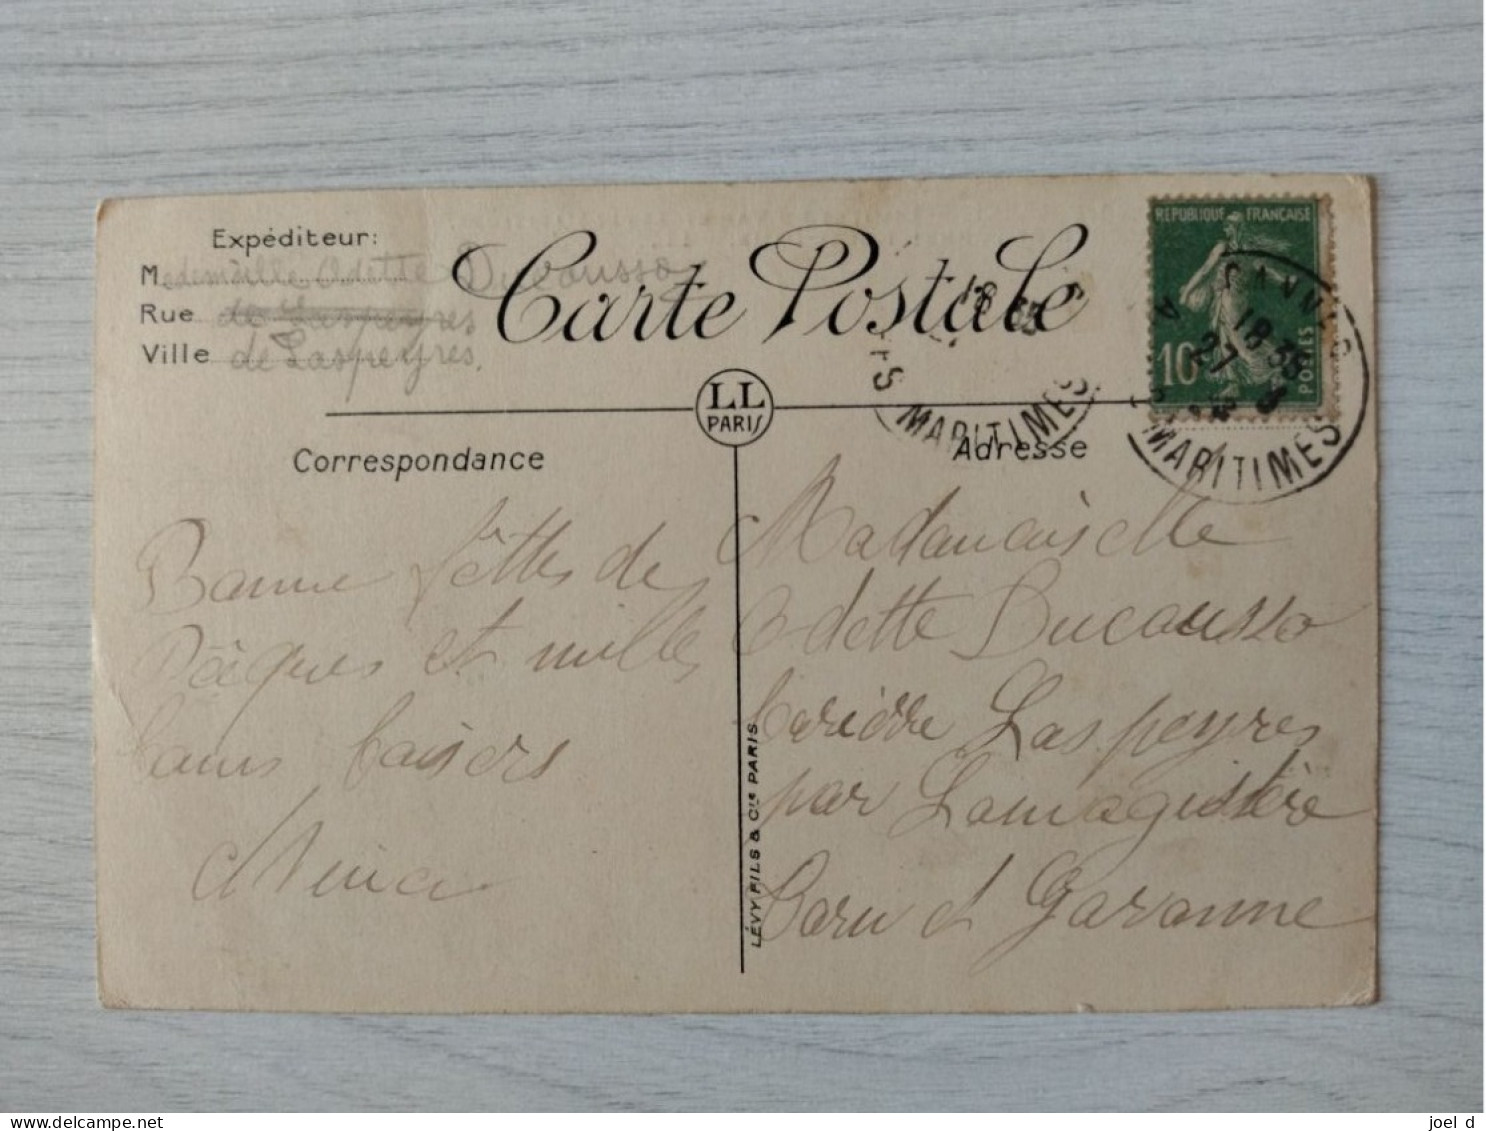 Expéditeur:
Mademoiselle Odette Ducousso
Rue de Laspeyres
Ville de Laspeyres.
Carte Postale
LL
PARIS
Correspondance
Adresse
REPUBLIQUE FRANÇAISE
10
POSTES
CANNES
18 35
27
MARITIMES
MARITIMES
Bonne fêttes de
Pâques et milles
bons baisers
Nina
Mademoiselle
Odette Ducousso
Laspeyres
par Lamagistère
Tarn et Garonne
LÉVY FILS & Cie PARIS
delcampe.net
joel d